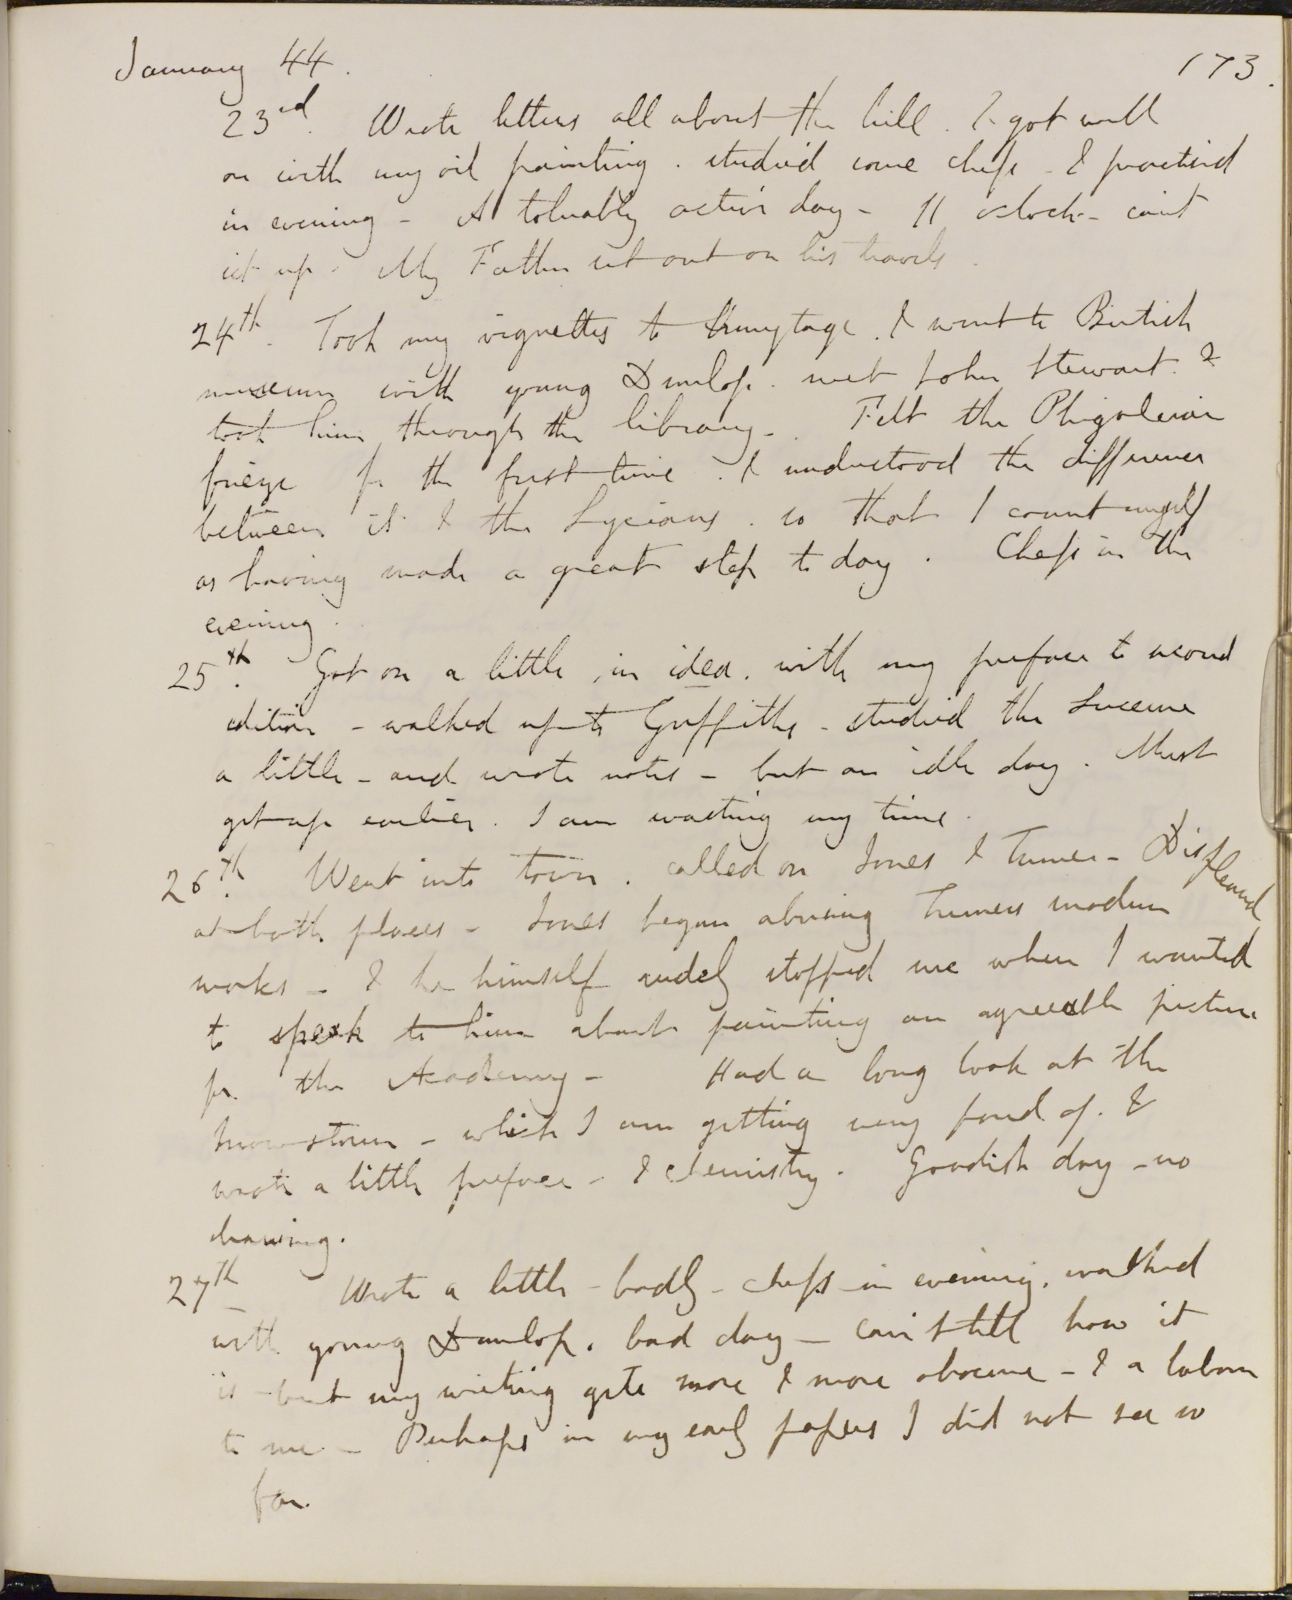 January 44.
173.
23rd. Wrote letters all about the hill. & got well
on with my oil painting. studied some chess - & practised
in evening - A tolerably active day - 11 oclock - can't
sit up. My Father set out on his travels.
24th. Took my vignettes to Armytage. & went to British
museum with young Dunlop. met John Stewart. &
took him through the library - Felt the Phigaleian
frieze for the first time. & understood the difference
between it & the Lycians. so that I count myself
as having made a great step today. Chess in the
evening.
25th. Got on a little, in idea. with my preface to second
edition - walked up to Griffiths - studied the Lucerne
a little - and wrote notes - but an idle day. Must
get up earlier. I am wasting my time.
26th. Went into town. called on Jones & Turner - Displeased
at both places - Jones began abusing Turners modern
works - & he himself rudely stopped me when I wanted
to speak to him about painting an agreeable picture
for the Academy - Had a long look at the
Snowstorm - which I am getting very fond of. &
wrote a little preface - & chemistry. Goodish day - no
drawing.
27th Wrote a little - badly - chess in evening. walked
with young Dunlop. bad day - can't tell how it
is - but my writing gets more & more obscure - & a labour
to me - Perhaps in my early papers I did not see so
far.